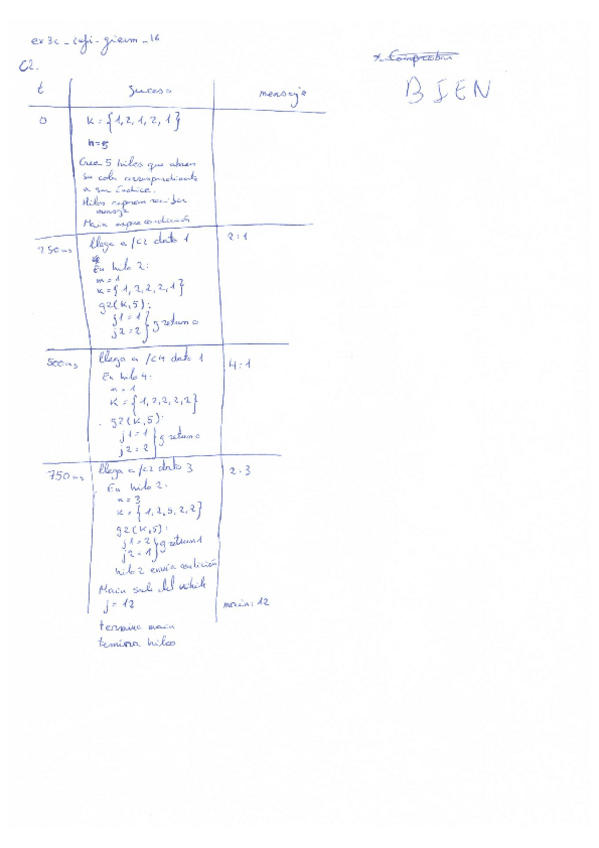 ex3c_sofi-gierm_16
* Comprobar
C2.
BIEN
t suceso mensaje
0 K = {1,2,1,2,1}
n=5
Crea 5 hilos que abren
su cola correspondiente
a su índice.
Hilos esperan recibir
mensaje
Main espera condición
250ms llega a /c2 dato 1 2:1
En hilo 2:
n=1
K={1,2,2,2,1}
g2(K,5):
j1=1
j2=2 } g return 0
500ms llega a /c4 dato 1 4:1
En hilo 4:
n=1
K={1,2,2,2,2}
g2(K,5):
j1=1
j2=2 } g return 0
750ms llega a /c2 dato 3 2:3
En hilo 2:
n=3
K={1,2,5,2,2}
g2(K,5):
j1=2
j2=1 } g return 1
hilo 2 envía condición
Main sale del while
j=12 main:12
termina main
termina hilos